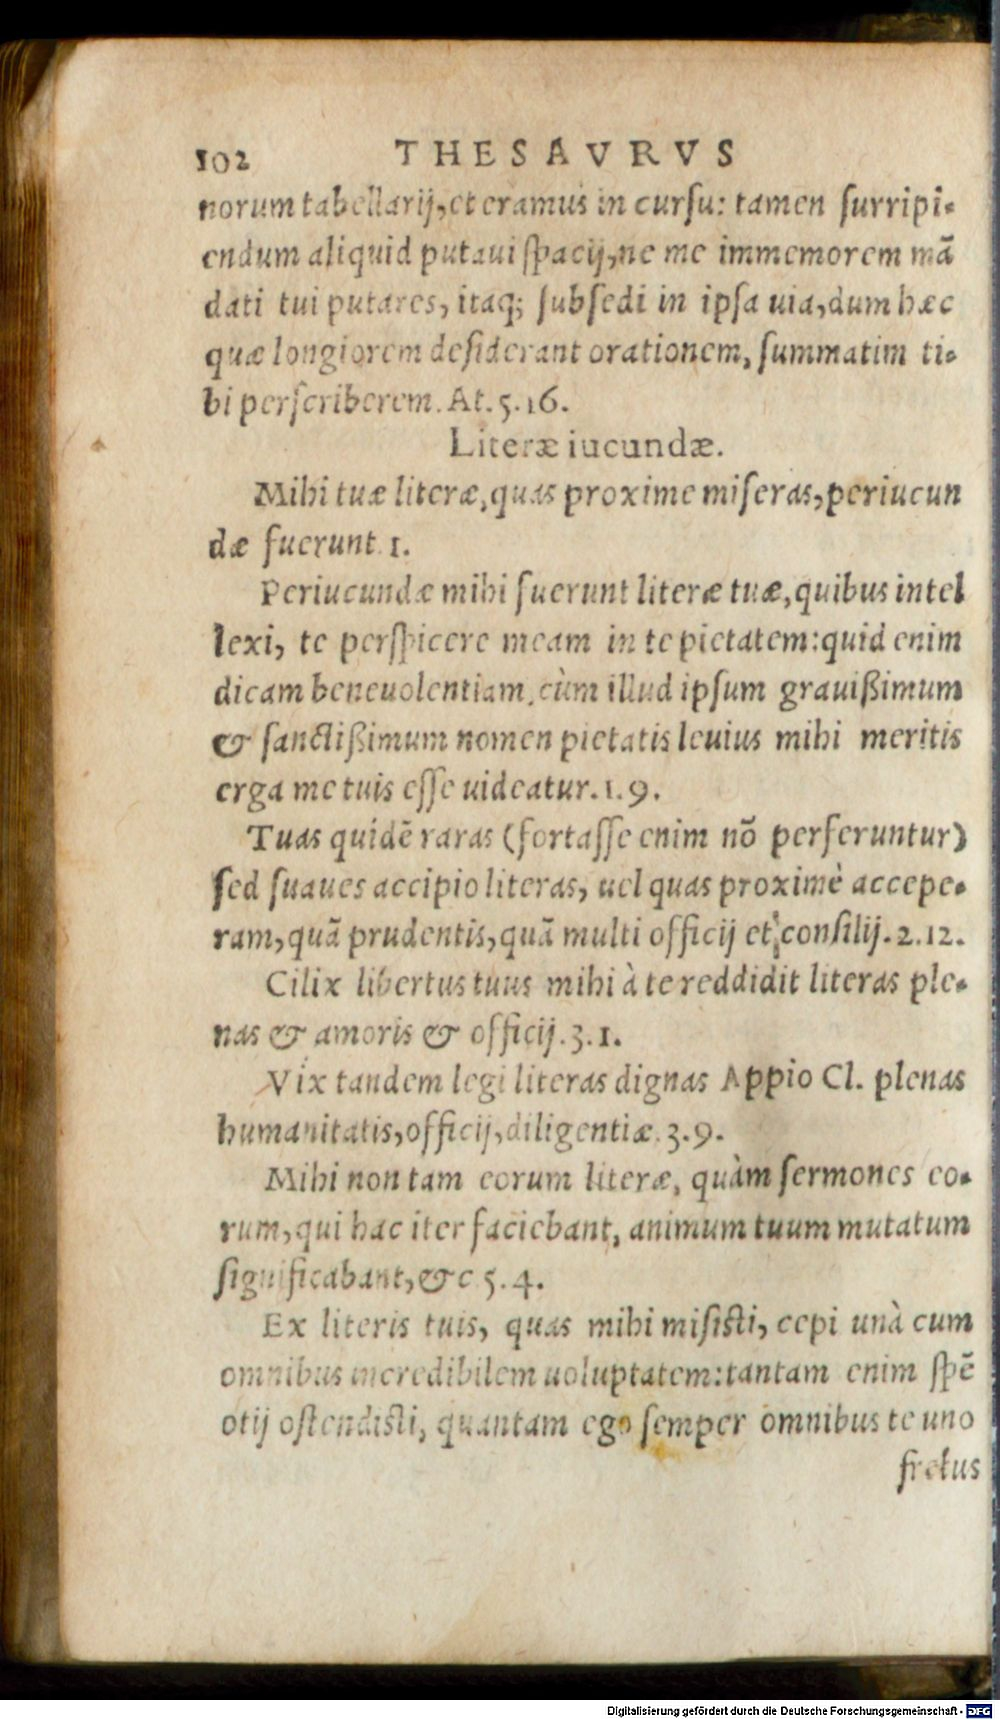 102 THESAVRVS
norum tabellarij, et eramus in cursu: tamen surripi-
endum aliquid putaui spacij, ne me immemorem mā
dati tui putares, itaq; subsedi in ipsa uia, dum hæc
quæ longiorem desiderant orationem, summatim ti-
bi perscriberem. At. 5. 16.
Literæ iucundæ.
Mihi tuæ literæ, quas proxime miseras, periucun
dæ fuerunt 1.
Periucundæ mihi fuerunt literæ tuæ, quibus intel
lexi, te perspicere meam in te pietatem: quid enim
dicam beneuolentiam, cùm illud ipsum grauißimum
& sanctißimum nomen pietatis leuius mihi meritis
erga me tuis esse uideatur. 1. 9.
Tuas quidē raras (fortasse enim nō perferuntur)
sed suaues accipio literas, uel quas proximè accepe-
ram, quā prudentis, quā multi officij et consilij. 2. 12.
Cilix libertus tuus mihi à te reddidit literas ple-
nas & amoris & officij. 3. 1.
Vix tandem legi literas dignas Appio Cl. plenas
humanitatis, officij, diligentiæ. 3. 9.
Mihi non tam eorum literæ, quàm sermones eo-
rum, qui hac iter faciebant, animum tuum mutatum
significabant, &c 5. 4.
Ex literis tuis, quas mihi misisti, cepi unà cum
omnibus incredibilem uoluptatem: tantam enim spē
otij ostendisti, quantam ego semper omnibus te uno
fretus
Digitalisierung gefördert durch die Deutsche Forschungsgemeinschaft - DFG